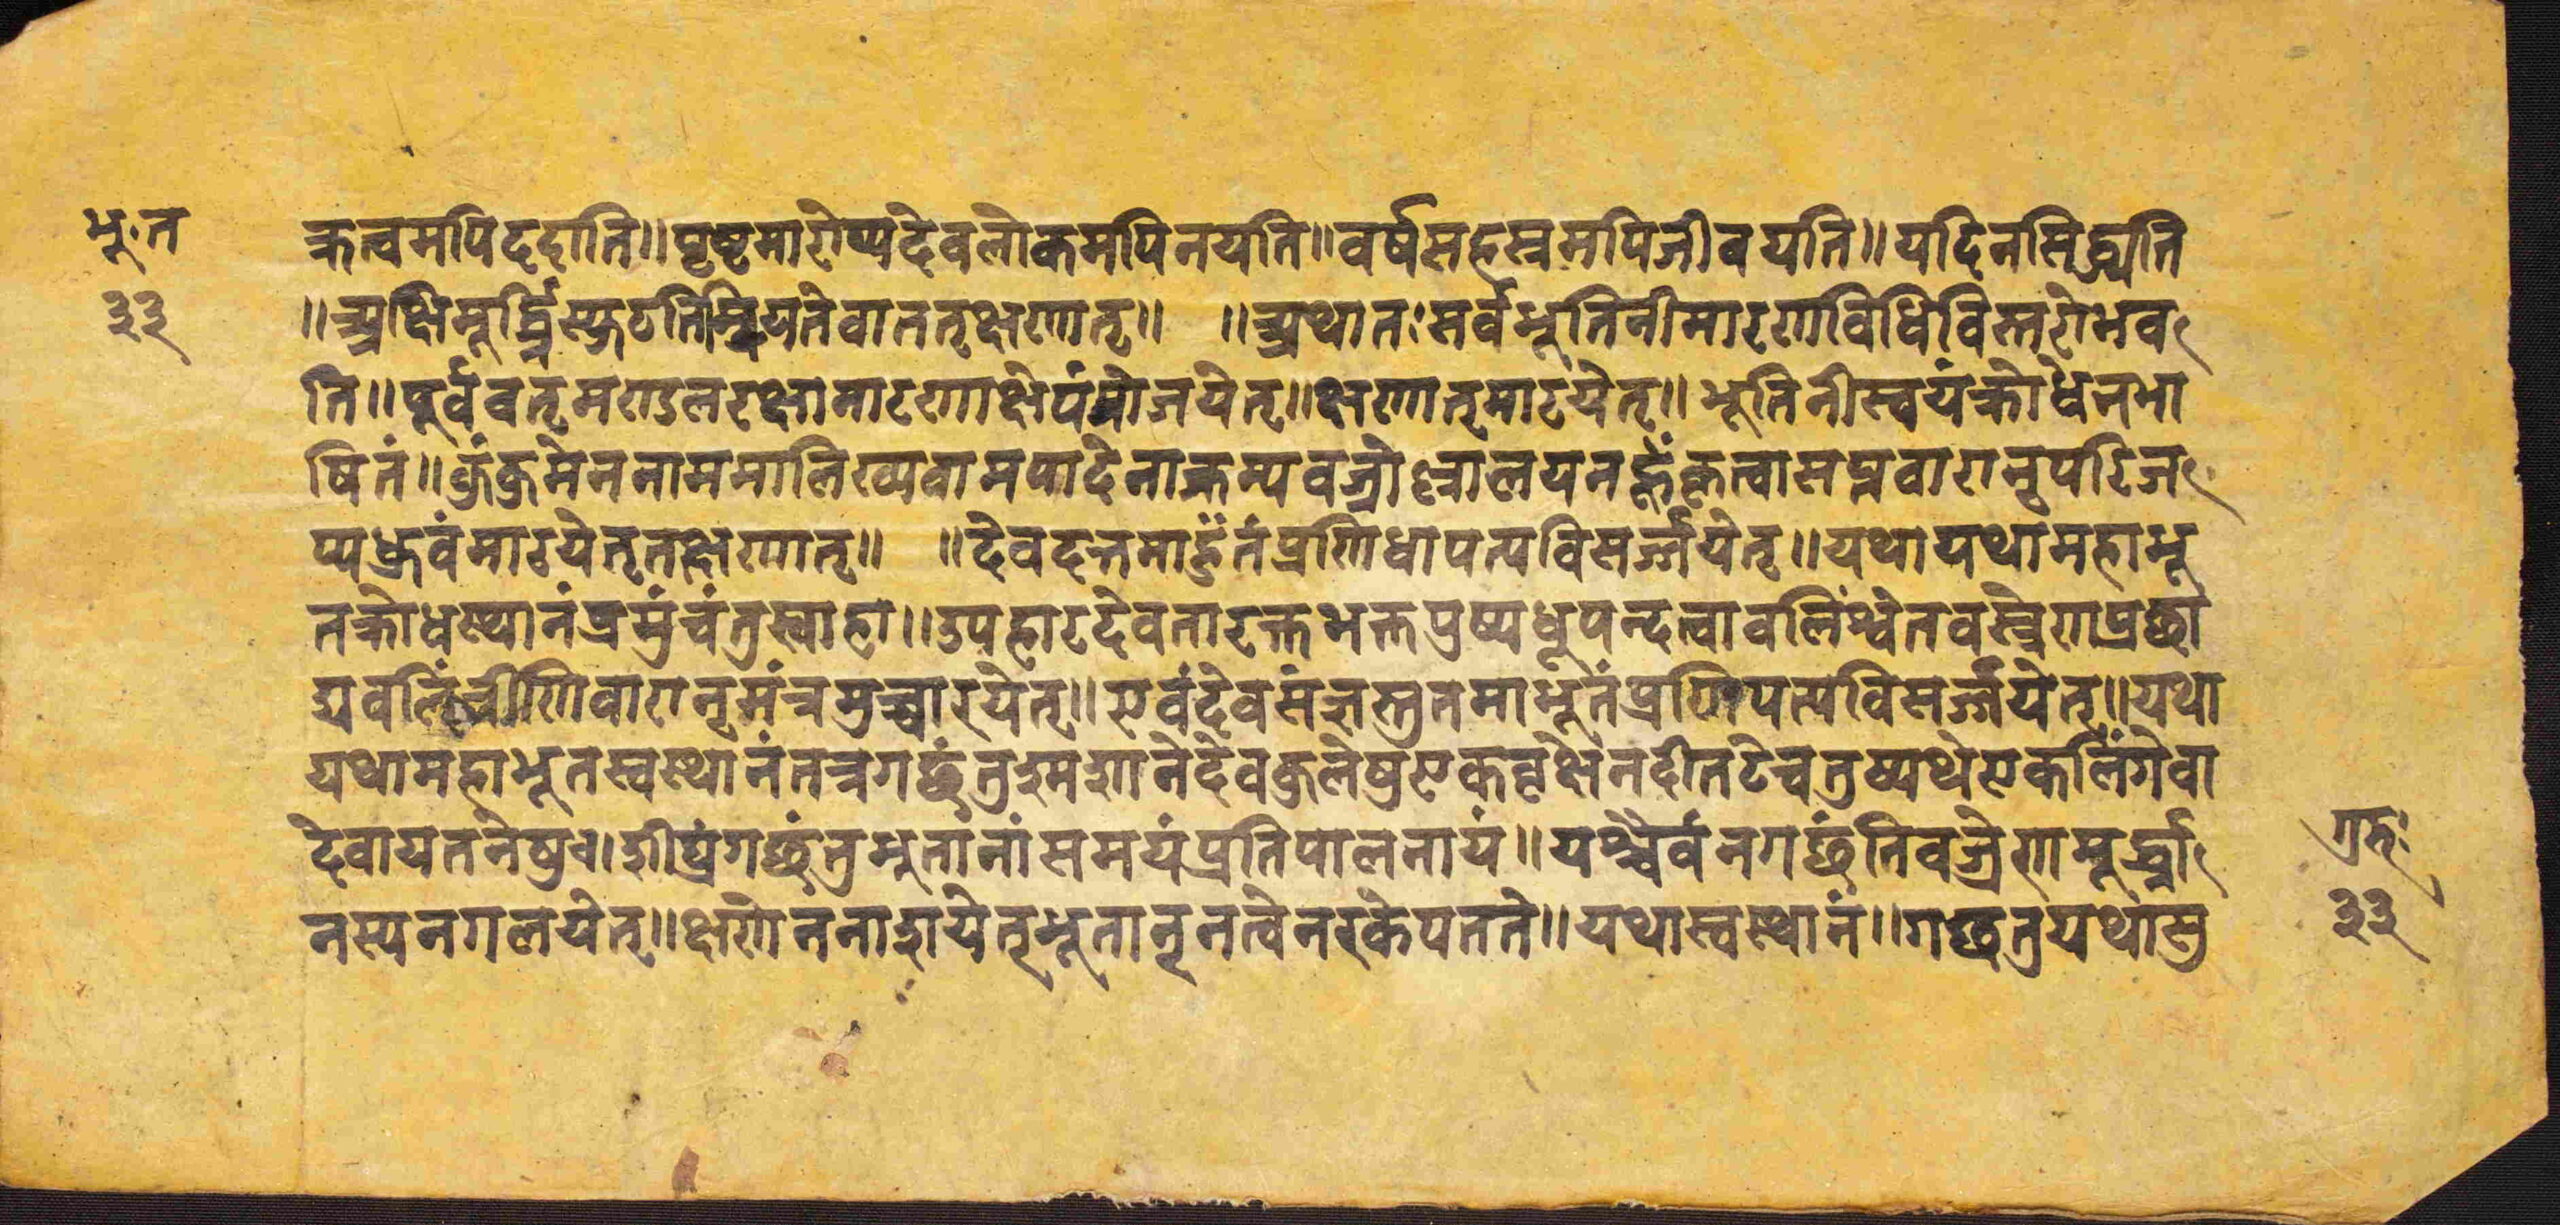 भू.त
३३
क्रत्वमपिददाति॥पृष्टमारोप्यदेवलोकमपिनयति॥वर्षसहस्त्रमपिजीवयति॥यदिनसिद्ध्यति
॥अक्षिमूर्द्ध्निस्फुटतिम्रियतेवाततृक्षणातृ॥ ॥अथातःसर्वभूतिनीमारणविधिविस्तरोभव
ति॥पूर्ववतृमण्डलरक्षामारणाक्षेपंयोजयेतृ॥क्षणातृमारयेतृ॥भूतिनीस्वयंक्रोधेनभा
षितं॥कुंकुमेननाममालिख्यवामपादेनाक्रम्यवज्रो
प्यध्रुवंमारयेतृतक्षणातृ॥ ॥देवदत्तमाहुंतंप्रणिधापत्यविसर्ज्जयेतृ॥यथायथामहाभू
तक्रोधस्थानंप्रमुंचंतुस्वाहा॥उपहारदेवतारक्तभक्तपुष्पधूपन्दत्वावलिंश्वेतवस्त्रेणप्रछा
द्यवलिंत्रीणिवारानृमंत्रमुच्चारयेतृ॥एवंदेवसंज्ञस्तुतमाभूतंप्रणिपत्यविसर्ज्जयेतृ॥यथा
यथामहाभूतस्वस्थानंतत्रगछंतुश्मशानेदेवकुलेषुएकवृक्षेनदीतटेचतुष्पथेएकलिंगेवा
देवायतनेषुच।शीघ्रंगछंतुभुतानांसमयंप्रतिपालनायं॥यश्चैवंनगछंतिवज्रेणमूर्द्ध्ना
नस्यनगलयेतृ॥क्षणेननाशयेतृभूतानृनत्वेनरकेपतते॥यथास्वस्थानं॥गछतुयथासु
गुरुः
३३